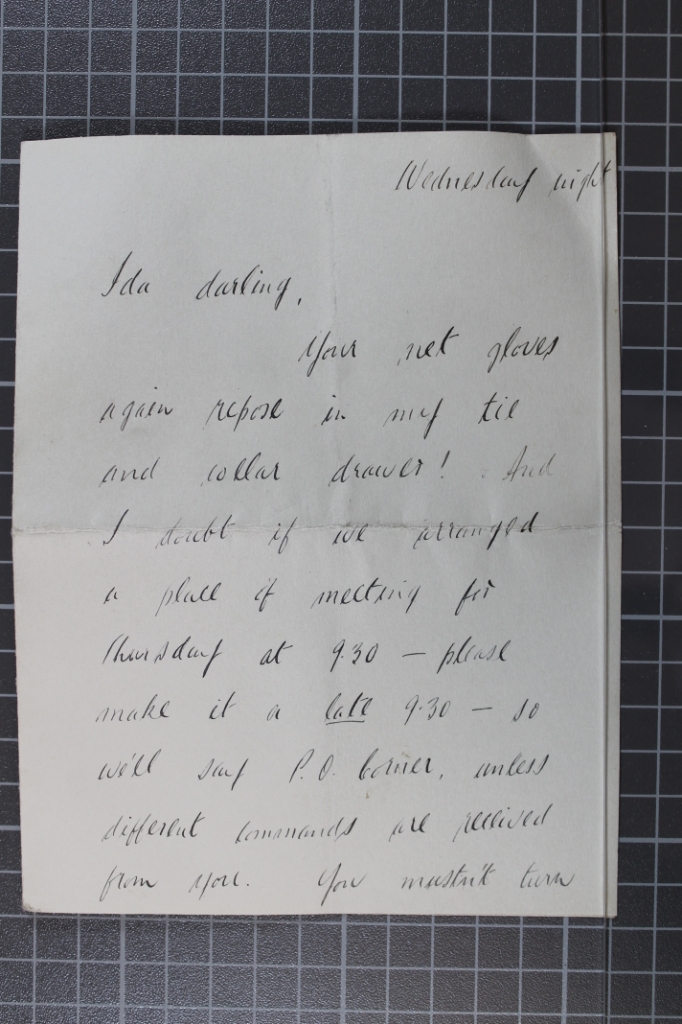 Wednesday night
Ida darling,
Your net gloves
again repose in my tie
and collar drawer! And
I doubt if we arranged
a place of meeting for
Thursday at 9.30 — please
make it a late 9.30 — so
we'll say P.O. Corner, unless
different commands are received
from you. You mustn't turn